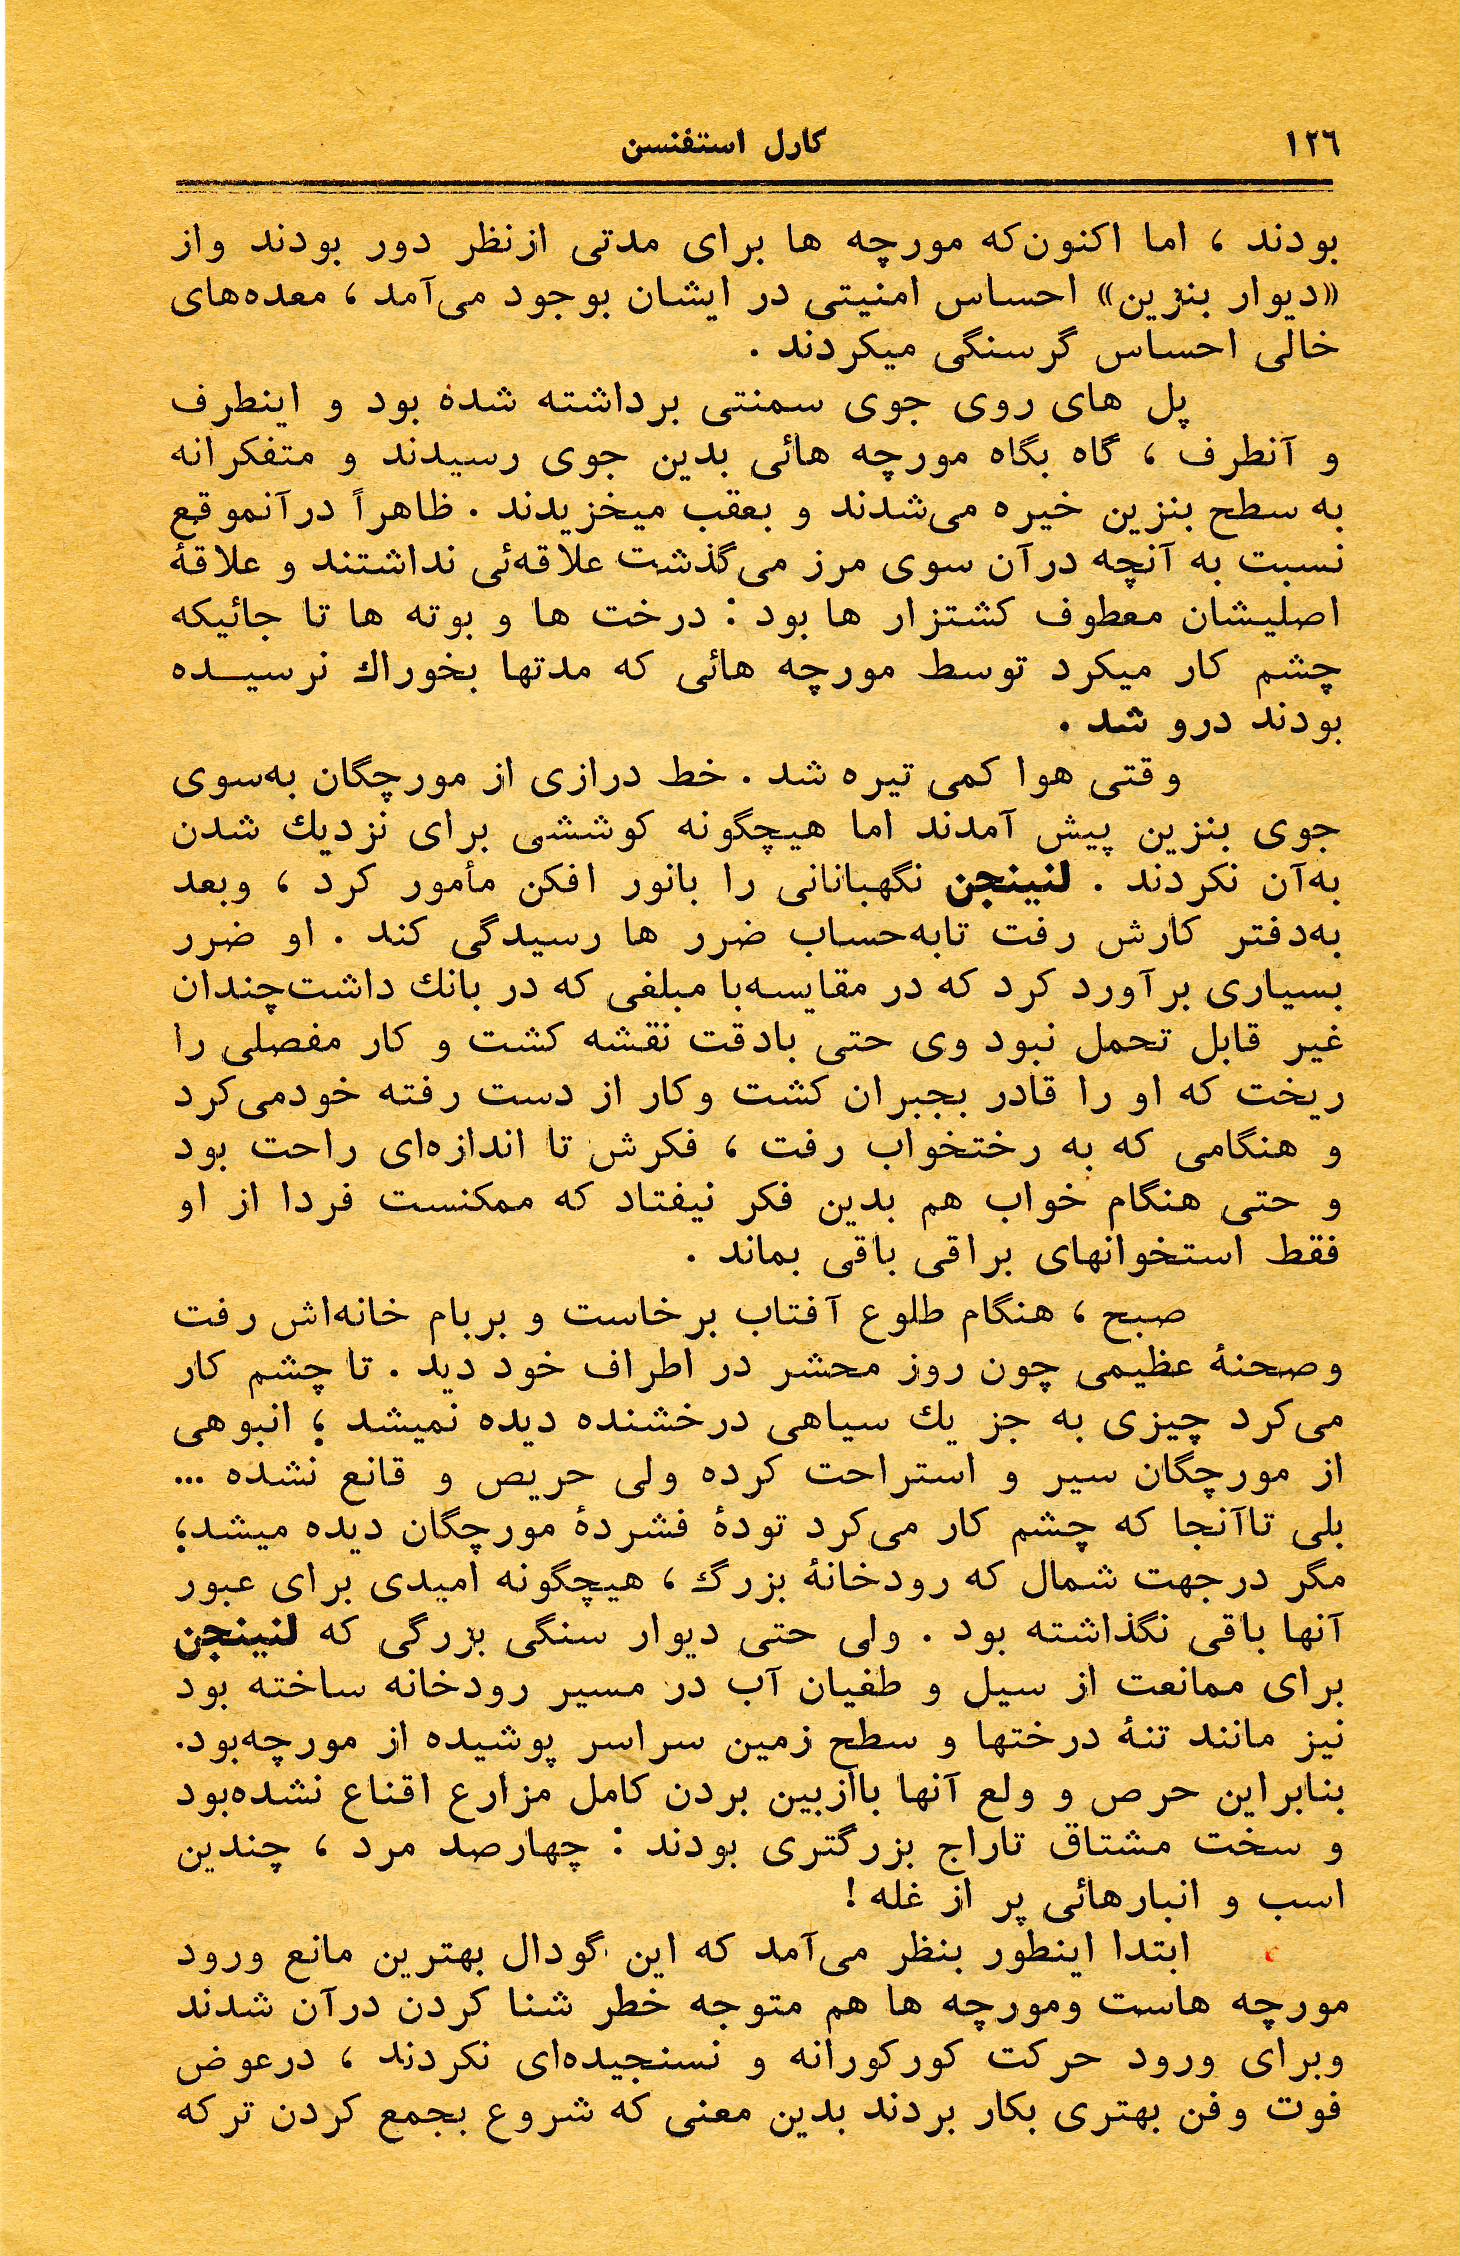 ۱۲٦
کارل استفنسن
بودند ، اما اکنون‌که مورچه ها برای مدتی ازنظر دور بودند واز
«دیوار بنزین» احساس امنیتی در ایشان بوجود می‌آمد ، معده‌های
خالی احساس گرسنگی میکردند .
پل های روی جوی سمنتی برداشته شده بود و اینطرف
و آنطرف ، گاه بگاه مورچه هائی بدین جوی رسیدند و متفکرانه
به سطح بنزین خیره می‌شدند و بعقب میخزیدند . ظاهراً درآنموقع
نسبت به آنچه درآن سوی مرز می‌گذشت علاقه‌ئی نداشتند و علاقهٔ
اصلیشان معطوف کشتزار ها بود : درخت ها و بوته ها تا جائیکه
چشم کار میکرد توسط مورچه هائی که مدتها بخوراك نرسیـــده
بودند درو شد .
وقتی هوا کمی تیره شد . خط درازی از مورچگان به‌سوی
جوی بنزین پیش آمدند اما هیچگونه کوششی برای نزدیك شدن
به‌آن نکردند . لنینجن نگهبانانی را بانور افکن مأمور کرد ، وبعد
به‌دفتر کارش رفت تابه‌حساب ضرر ها رسیدگی کند . او ضرر
بسیاری برآورد کرد که در مقایسه‌با مبلغی که در بانك داشت‌چندان
غیر قابل تحمل نبود وی حتی بادقت نقشه کشت و کار مفصلی را
ریخت که او را قادر بجبران کشت وکار از دست رفته خودمی‌کرد
و هنگامی که به رختخواب رفت ، فکرش تا اندازه‌ای راحت بود
و حتی هنگام خواب هم بدین فکر نیفتاد که ممکنست فردا از او
فقط استخوانهای براقی باقی بماند .
صبح ، هنگام طلوع آفتاب برخاست و بربام خانه‌اش رفت
وصحنهٔ عظیمی چون روز محشر در اطراف خود دید . تا چشم کار
می‌کرد چیزی به جز یك سیاهی درخشنده دیده نمیشد ؛ انبوهی
از مورچگان سیر و استراحت کرده ولی حریص و قانع نشده ...
بلی تاآنجا که چشم کار می‌کرد تودهٔ فشردهٔ مورچگان دیده میشد؛
مگر درجهت شمال که رودخانهٔ بزرگ ، هیچگونه امیدی برای عبور
آنها باقی نگذاشته بود . ولی حتی دیوار سنگی بزرگی که لنینجن
برای ممانعت از سیل و طغیان آب در مسیر رودخانه ساخته بود
نیز مانند تنهٔ درختها و سطح زمین سراسر پوشیده از مورچه‌بود.
بنابراین حرص و ولع آنها باازبین بردن کامل مزارع اقناع نشده‌بود
و سخت مشتاق تاراج بزرگتری بودند : چهارصد مرد ، چندین
اسب و انبارهائی پر از غله !
ابتدا اینطور بنظر می‌آمد که این گودال بهترین مانع ورود
مورچه هاست ومورچه ها هم متوجه خطر شنا کردن درآن شدند
وبرای ورود حرکت کورکورانه و نسنجیده‌ای نکردند ، درعوض
فوت وفن بهتری بکار بردند بدین معنی که شروع بجمع کردن ترکه